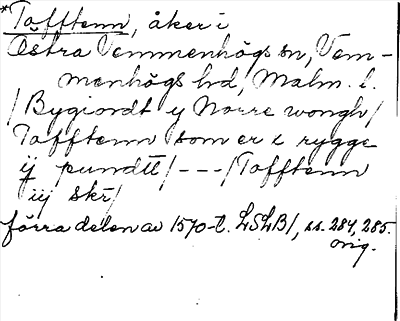 *Tofftenn, åker i
Östra Vemmenhögs sn, Vem-
menhögs hd, Malm. l.
/Bygiordt y Norre wongh/
Tofftenn som er i rygge
ÿ pundtt/---/Tofftenn
iij skr/
förra delen av 1570-t. LSLB1, ss. 284, 285.
orig.